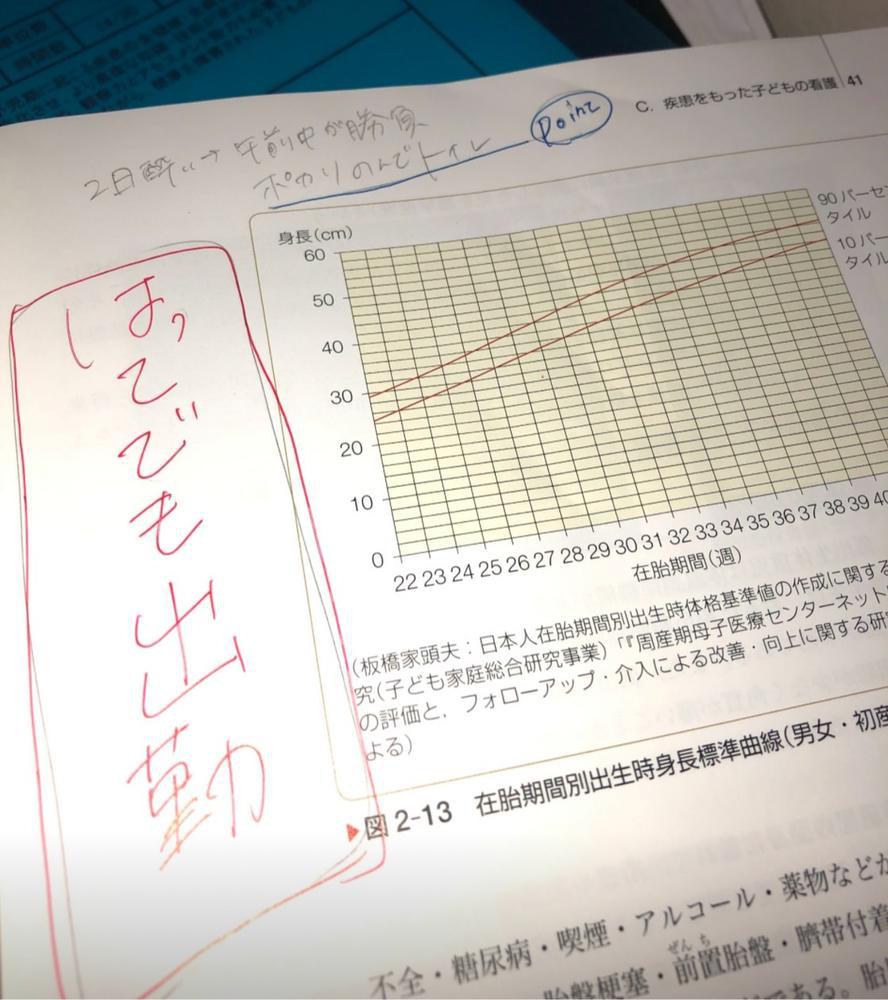 C. 疾患をもった子どもの看護 41
2日酔い→午前中が勝負
ポカリのんでトイレ
Point
はってでも出勤
身長(cm)
60
50
40
30
20
10
0
90パーセ
タイル
10パー
タイル
22 23 24 25 26 27 28 29 30 31 32 33 34 35 36 37 38 39 40
在胎期間(週)
(板橋家頭夫：日本人在胎期間別出生時体格基準値の作成に関する
究(子ども家庭総合研究事業)「『周産期母子医療センターネット
の評価と，フォローアップ・介入による改善・向上に関する研
よる)
▶図2-13 在胎期間別出生時身長標準曲線(男女・初産
不全・糖尿病・喫煙・アルコール・薬物などが
胎盤梗塞・前置胎盤・臍帯付着
ぜんち
である。胎